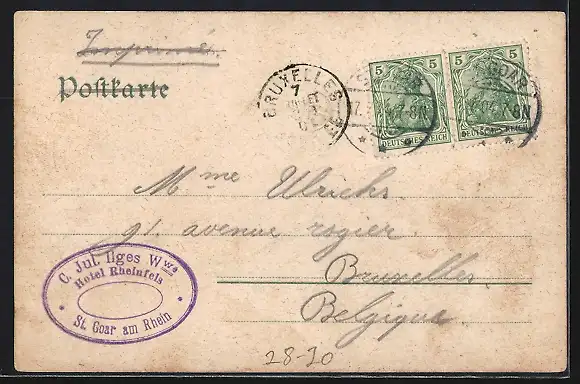 Imprimé.
Postkarte
BRUXELLES
7
JUILLET
5 5
5 5
ST. GOAR
7-8N
DEUTSCHES REICH
DEUTSCHES REICH
Mme Ulrichs
91. avenue rogier.
Bruxelles
Belgique
C. Jul. Ilges Wwe
Hotel Rheinfels
St. Goar am Rhein
28-30